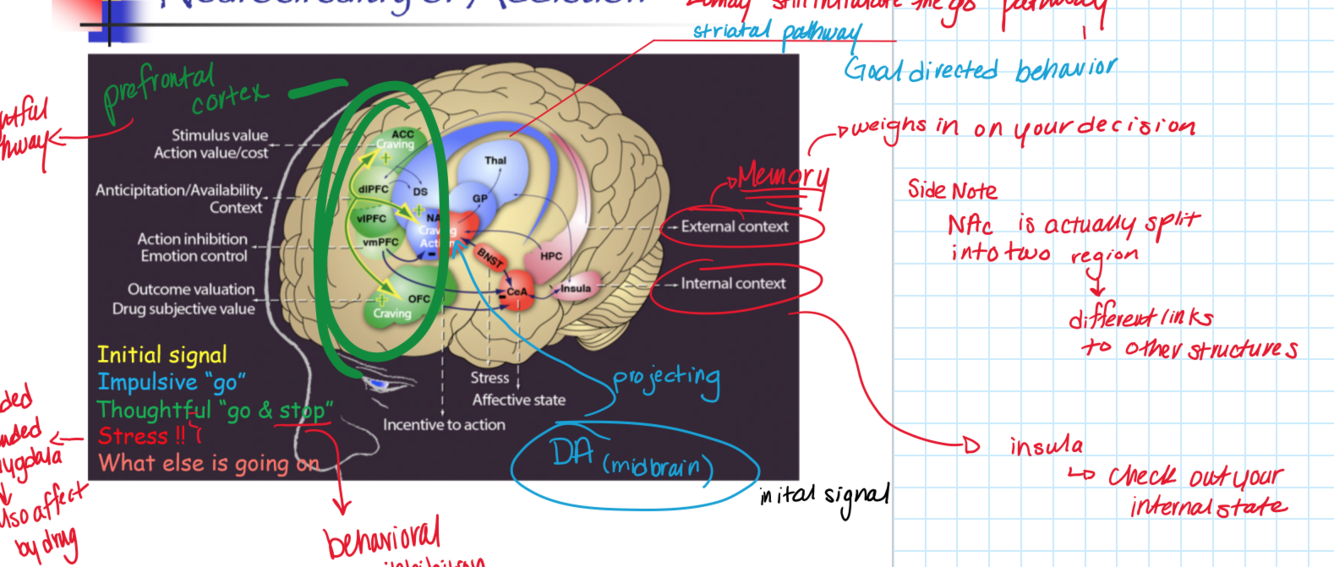 Neurocircuitry of Addiction
may still the go pathway
striatal pathway
Goal directed behavior
prefrontal
cortex
Stimulus value
Action value/cost
Anticipation/Availability
Context
Action inhibition
Emotion control
Outcome valuation
Drug subjective value
ACC
Craving
+
dlPFC
DS
vlPFC
+
vmPFC
NA
Craving
Acti
-
Thal
GP
BNST
HPC
CeA
-
Insula
OFC
+
Craving
Initial signal
Impulsive “go”
Thoughtful “go & stop”
Stress !!
What else is going on
Stress
Affective state
Incentive to action
projecting
DA (midbrain)
inital signal
Memory
External context
Internal context
weighs in on your decision
Side Note
NAc is actually split
into two region
different links
to other structures
insula
check out your
internal state
also affect
by drug
behavioral